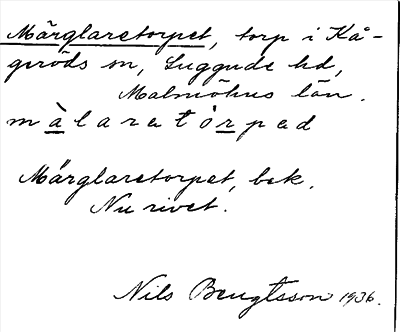 Märglaretorpet, torp i Kå-
geröds sn, Luggude hd,
Malmöhus län.
m à l a r e t ò r p e d
Märglaretorpet, bek.
Nu rivet.
Nils Bengtsson 1936.